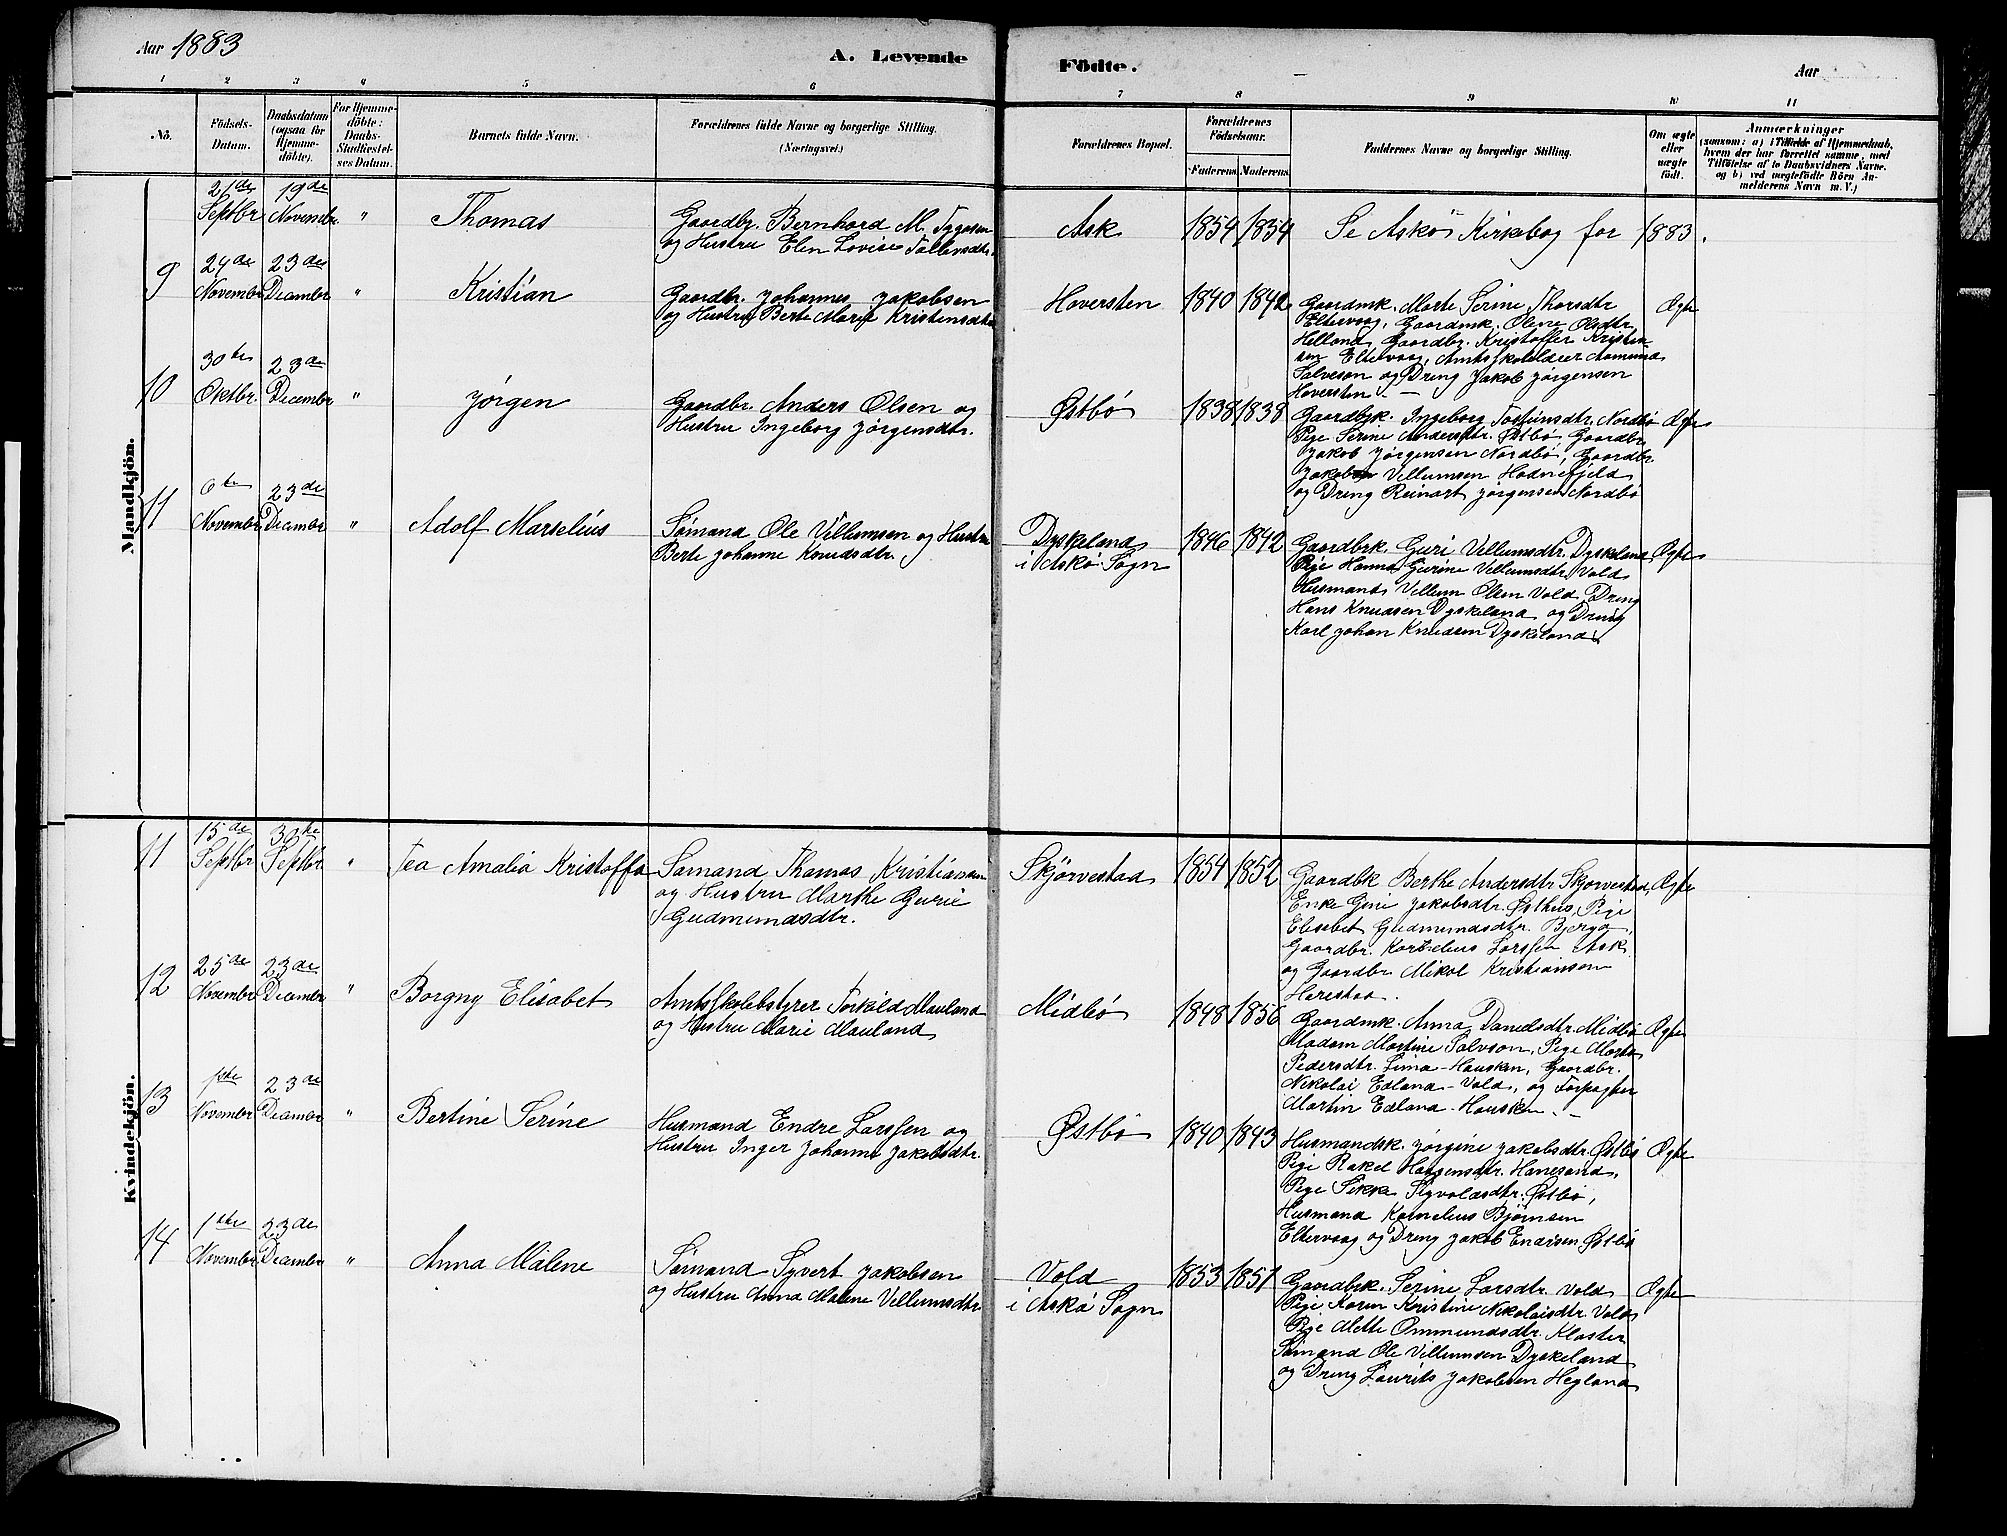 Aar 1883
A. Levende
Födte.
Aar
1 2 3 4 5 6 7 8 9 10 11
No.
Födsels-Datum.
Daabsdatum (ogsaa for Hjemme-döbte).
For Hjemme-döbte: Daabs-Stadfæstel-ses Datum.
Barnets fulde Navn.
Forældrenes fulde Navne og borgerlige Stilling.
(Næringsvei.)
Forældrenes Bopæl.
Forældrenes Födselsaar.
Faderens Moderens
Faddernes Navne og borgerlige Stilling.
Om ægte eller uægte födt.
Anmærkninger
(saasom: a) i Tilfælde af Hjemmedaab,
hvem der har forrettet samme, med
Tilföielse af to Daabsvidners Navne,
og b) ved uægtefödte Börn An-
melderens Navn m. V.)
Mandkjön.
21de Septbr 19de Novembr " Thomas
Gaardbr. Bernhard M. Tygesen
og Hustru Elen Lovise Tollevsdtr.
Ask 1859 1854 Se Askø Kirkebog for 1883.
9 24de Novembr 23de Decembr " Kristian
Gaardbr. Johannes Jakobsen
og Hustru Berte Marie Kristensdtr
Haversten 1840 1842
Gaardmk. Marte Serine Thorsdtr
Eltervaag, Gaardmk. Olene Olsdtr
Helland, Gaardbr. Kristoffer Kristen-
sen Eltervaag, Amtsskolelærer Aamund
Salveson og Dreng Jakob Jørgensen
Haversten. —
Ægte
10 30te Oktbr. 23de Decembr " Jørgen
Gaardbr. Anders Olsen og
Hustru Ingeborg Jørgensdtr.
Østbø 1838 1838
Gaardbrk. Ingeborg Tostensdtr. Nordbø
Pige Serine Andersdtr. Østbø, Gaardbr.
Jakob Jørgensen Nordbø, Gaardbr.
Jakob Villumsen Hodnefjeld
og Dreng Reinart Jørgensen Nordbø
Ægte
11 6te Novembr 23de Decembr " Adolf Marselius
Sømand Ole Villumsen og Hustru
Berte Johanne Knudsdtr.
Dyskeland
i Askø Sogn
1846 1842
Gaardbrk. Guri Villumsdtr. Dyskeland
Pige Hanna Gurine Villumsdtr. Vold
Husmand Villum Olsen Vold, Dreng
Hans Knudsen Dyskeland og Dreng
Karl Johan Knudsen Dyskeland
Ægte
Kvindekjön.
11 15de Septbr 30te Septbr " Tea Amalia Kristoffa
Sømand Thomas Kristiansen
og Hustru Marthe Gurie
Gudmundsdtr.
Skjørvestad 1854 1852
Gaardbk Berthe Andersdtr. Skjørvestad,
Enke Gini Jakobsdtr. Østhus, Pige
Elisabet Gudmundsdtr. Bjerga,
Gaardbr. Kornelius Larssen Ask
og Gaardbr. Mikal Kristiansen
Harestad.
Ægte
12 25de Novembr 23de Decembr " Borgny Elisabet
Amtsskolebstyrer Torkild Mauland
og Hustru Marie Mauland
Midbø 1848 1856
Gaardmk. Anna Danielsdtr. Midbø
Madam Martine Salvson, Pige Marta
Pedersdtr. Lima - Hausken, Gaardbr.
Nikolai Edland - Vold, og Forpagter
Martin Edland - Hausken. —
Ægte
13 1ste Novembr 23de Decembr " Bertine Serine
Husmand Endre Larssen og
Hustru Inger Johanne Jakobsdtr.
Østbø 1840 1843
Husmandsk. Jørgine Jakobsdtr. Østbø
Pige Rakel Haagensdtr. Hanesand,
Pige Sikke Sigvaldsdtr. Østbø,
Husmand Kornelius Bjørnsen
Eltervaag og Dreng Jakob Endresen Østbø
Ægte
14 1ste Novembr 23de Decembr " Anna Malene
Sømand Syvert Jakobsen
og Hustru Anna Malene Villumsdtr.
Vold
i Askø Sogn
1853 1851
Gaardbrk. Serine Larsdtr. Vold
Pige Karen Kristine Nikolaisdtr. Vold
Pige Mette Ommundsdtr. Kloster
Sømand Ole Villumsen Dyskeland
og Dreng Laurits Jakobsen Hegland
Ægte